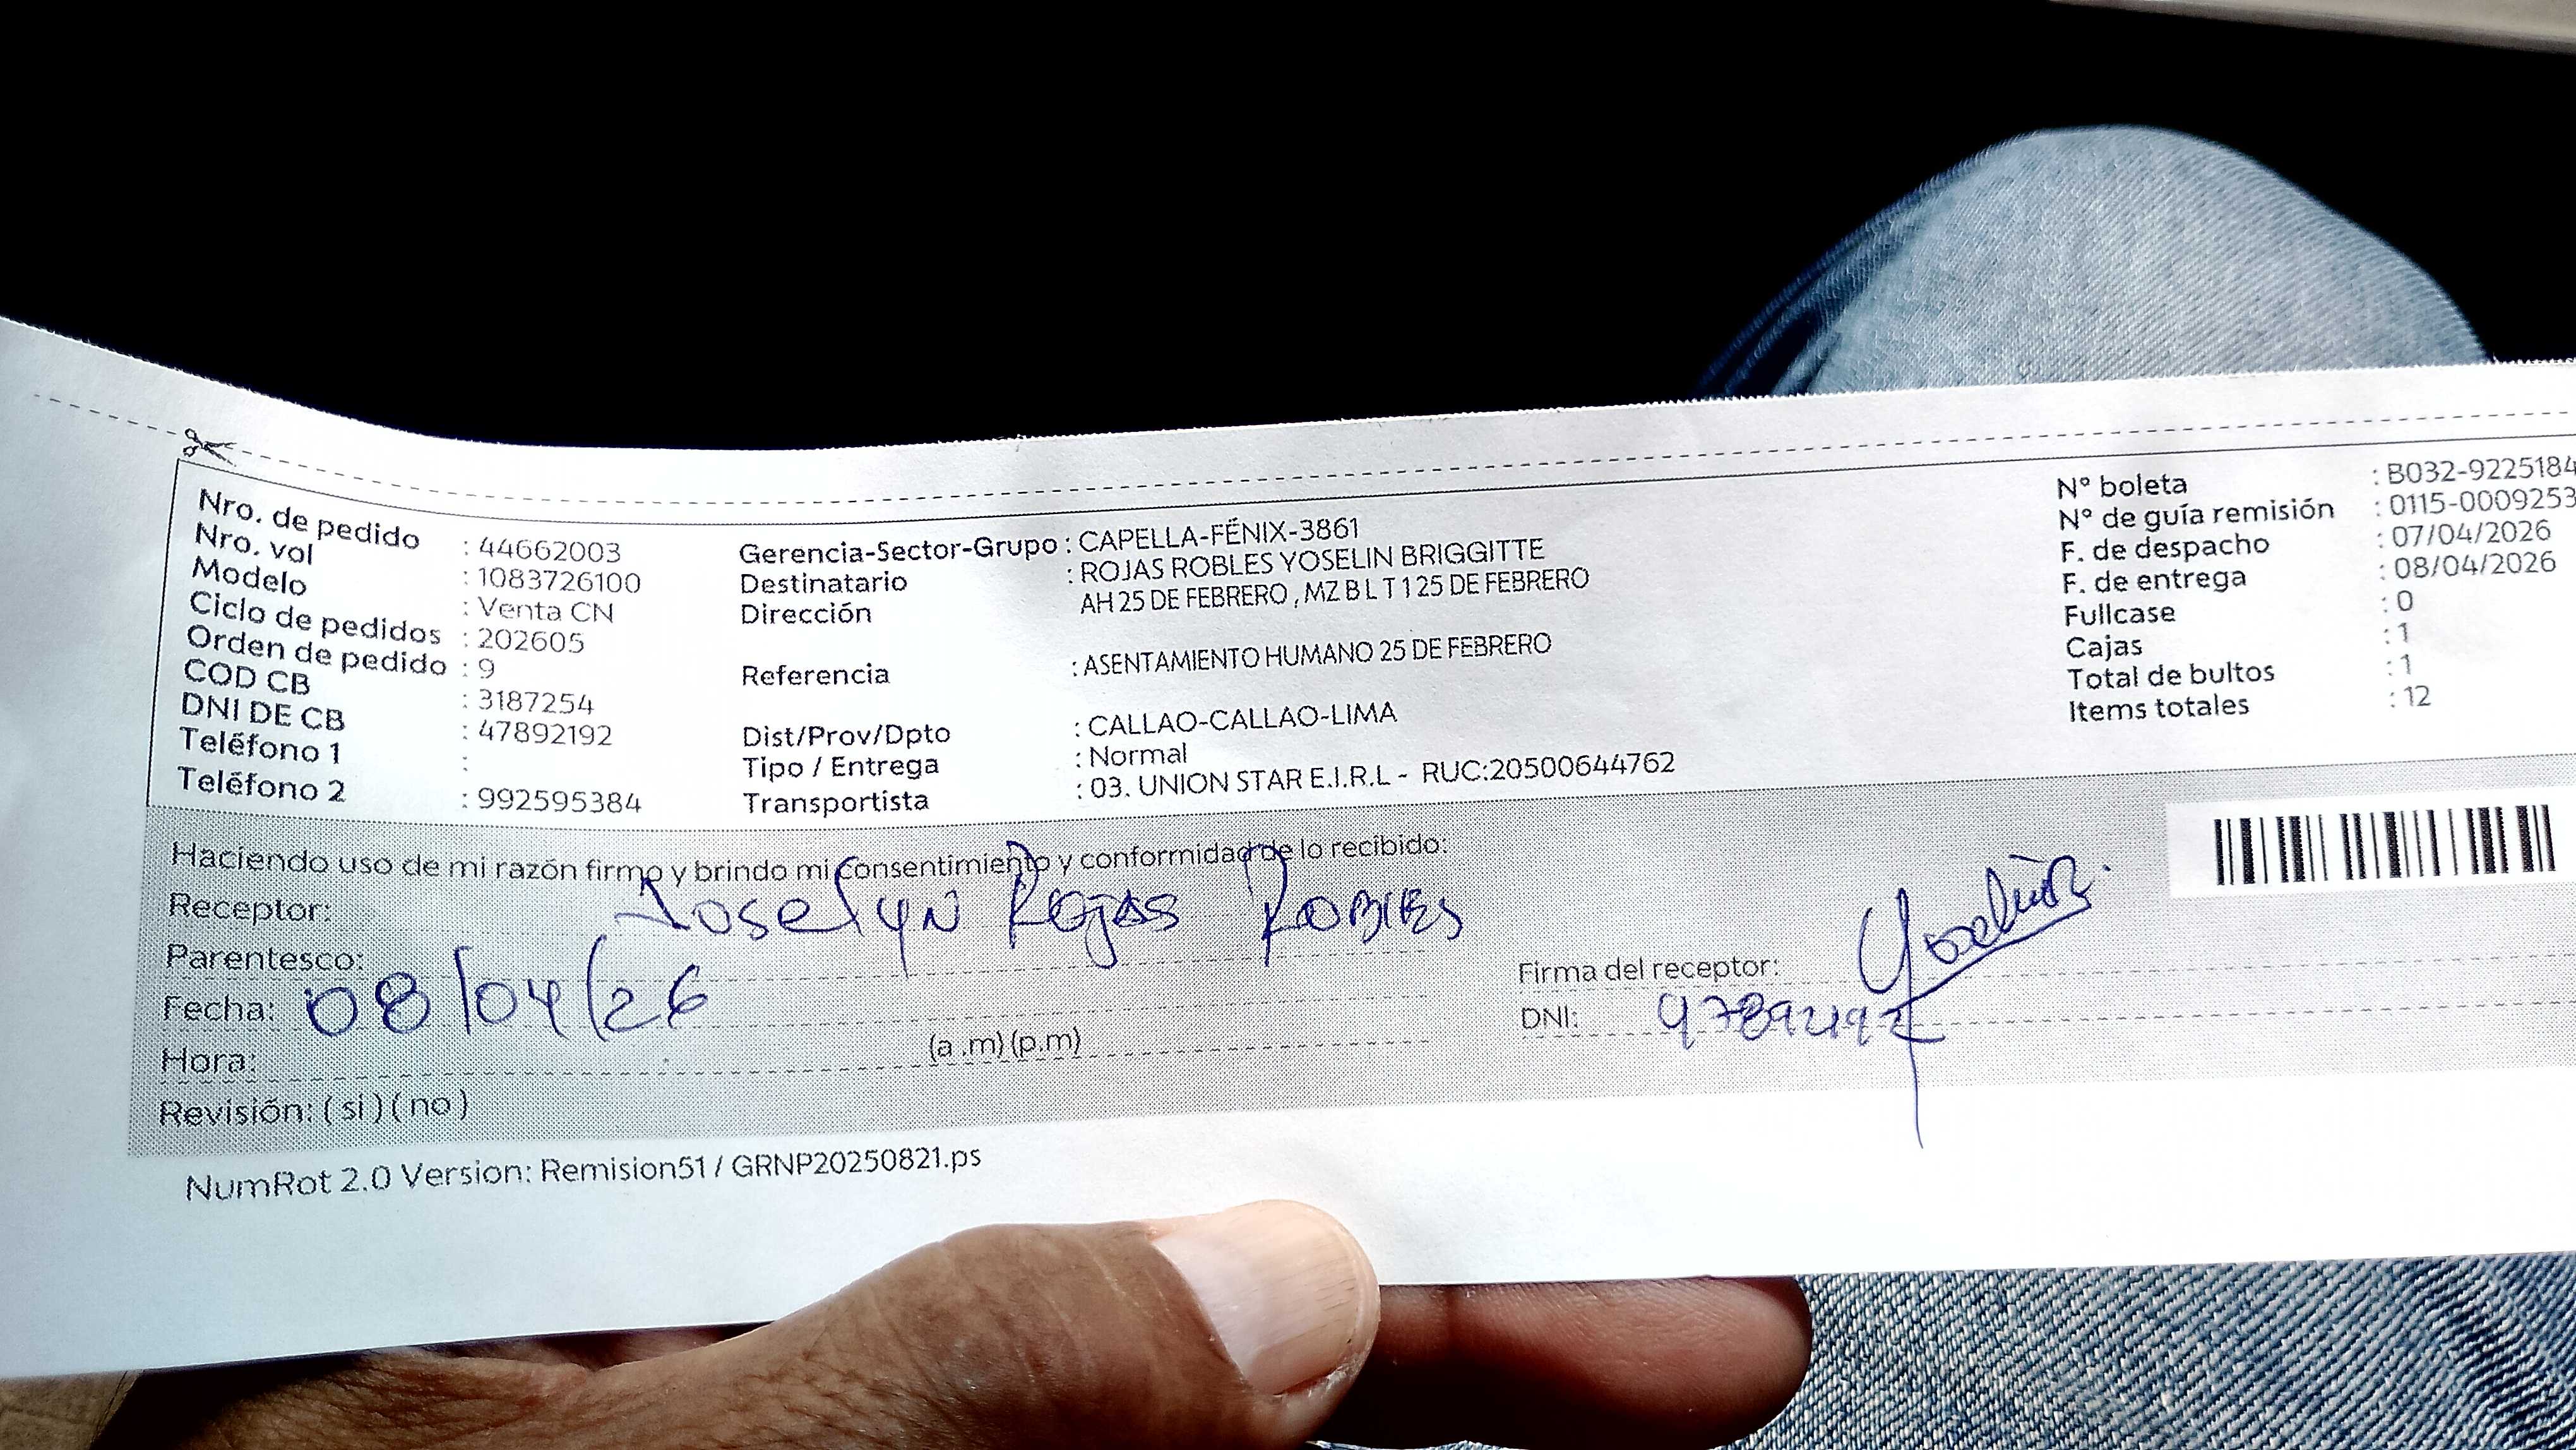 Nro. de pedido : 44662003
Nro. vol : 1083726100
Modelo : Venta CN
Ciclo de pedidos : 202605
Orden de pedido : 9
COD CB : 3187254
DNI DE CB : 47892192
Teléfono 1 :
Teléfono 2 : 992595384
Gerencia-Sector-Grupo : CAPELLA-FÉNIX-3861
Destinatario : ROJAS ROBLES YOSELIN BRIGGITTE
Dirección AH 25 DE FEBRERO , MZ B L T 1 25 DE FEBRERO
Referencia : ASENTAMIENTO HUMANO 25 DE FEBRERO
Dist/Prov/Dpto : CALLAO-CALLAO-LIMA
Tipo / Entrega : Normal
Transportista : 03. UNION STAR E.I.R.L - RUC:20500644762
N° boleta : B032-9225184
N° de guía remisión : 0115-0009253
F. de despacho : 07/04/2026
F. de entrega : 08/04/2026
Fullcase : 0
Cajas : 1
Total de bultos : 1
Items totales : 12
Haciendo uso de mi razón firmo y brindo mi consentimiento y conformidad de lo recibido:
Receptor: Yoselyn Rojas Robles
Parentesco:
Fecha: 08/04/26
Hora: (a .m) (p.m)
Revisión: ( si ) ( no )
Firma del receptor:
DNI: 47892192
NumRot 2.0 Version: Remision51 / GRNP20250821.ps